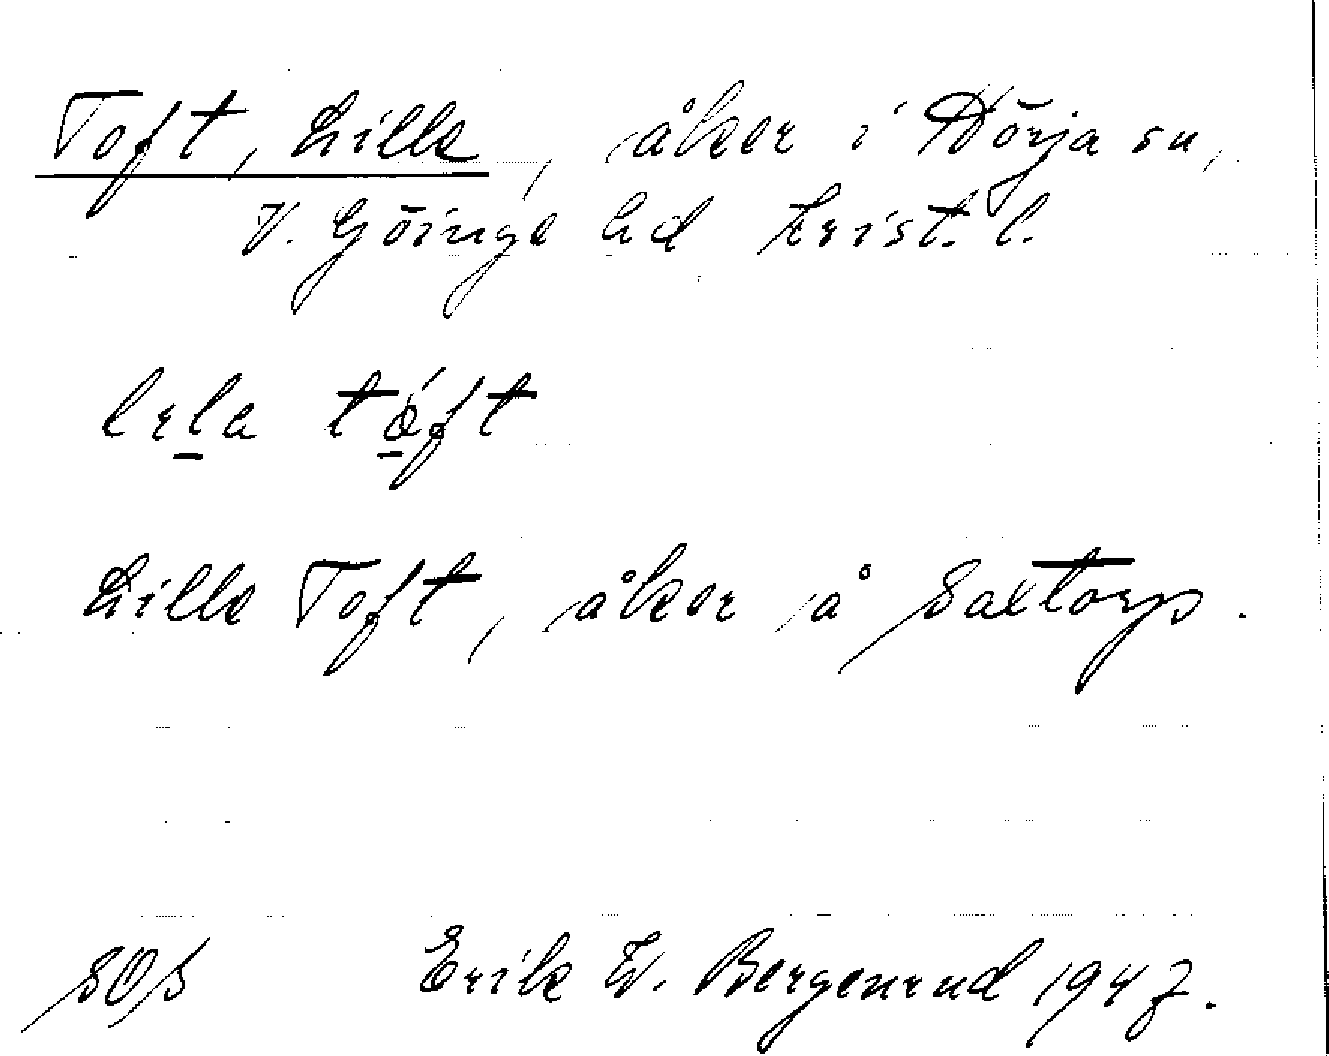 Toft, Lille, åker i Dörja sn,
V. Göinge hd Krist. l.
lela tóft
Lille Toft, åker å Saxtorp.
SOS Erik W. Bergenrud 1947.